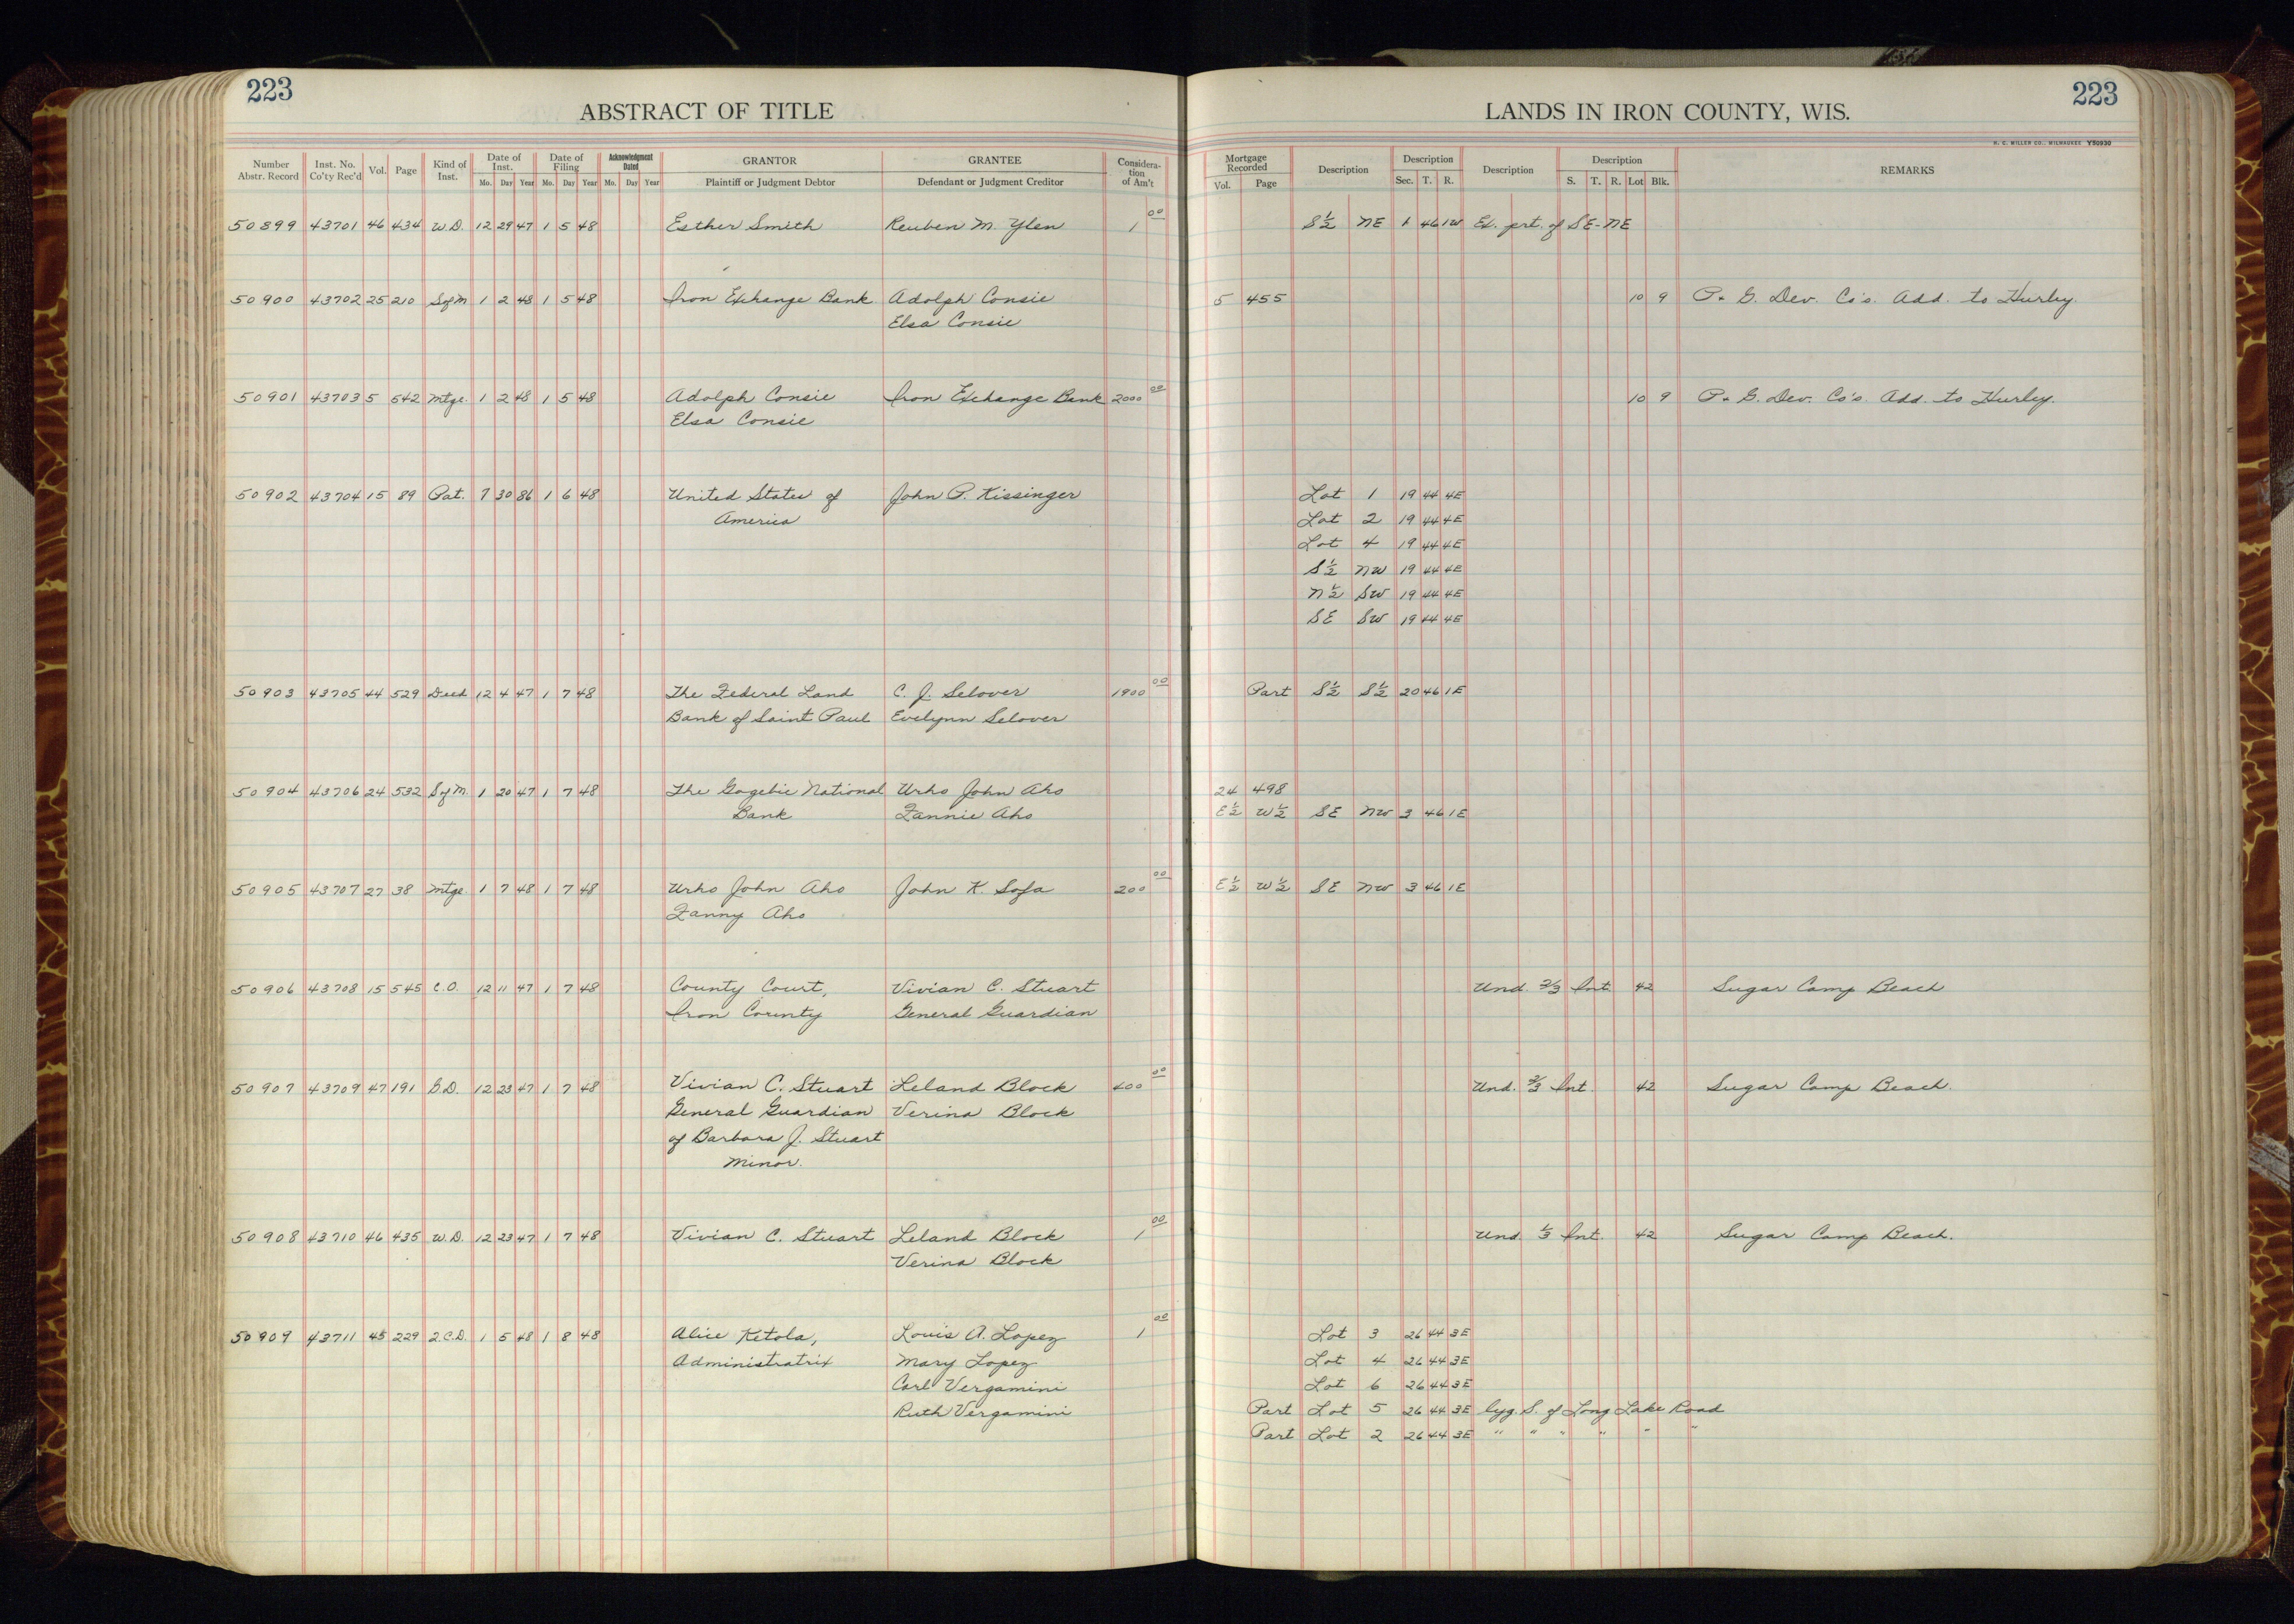 223
ABSTRACT OF TITLE
LANDS IN IRON COUNTY, WIS.
223
H. C. MILLER CO., MILWAUKEE Y50930
Number Abstr. Record | Inst. No. Co'ty Rec'd | Vol. | Page | Kind of Inst. | Date of Inst. Mo. Day Year | Date of Filing Mo. Day Year | Acknowledgment Dated Mo. Day Year | GRANTOR Plaintiff or Judgment Debtor | GRANTEE Defendant or Judgment Creditor | Considera-tion of Am't | Mortgage Recorded Vol. Page | Description | Description Sec. T. R. | Description | Description S. T. R. Lot Blk. | REMARKS
50899 43701 46 434 W.D. 12 29 47 1 5 48 Esther Smith Reuben M. Ylen 1 00 S½ NE 1 46 1W Ex. prt. of SE-NE
50900 43702 25 210 SofM 1 2 48 1 5 48 Iron Exchange Bank Adolph Consie 5 455 10 9 P. & G. Dev. Co's. Add. to Hurley.
Elsa Consie
50901 43703 5 542 Mtge. 1 2 48 1 5 48 Adolph Consie Iron Exchange Bank 2000 00 10 9 P. & G. Dev. Co's. Add. to Hurley.
Elsa Consie
50902 43704 15 89 Pat. 7 30 86 1 6 48 United States of John P. Kissinger Lot 1 19 44 4E
America Lot 2 19 44 4E
Lot 4 19 44 4E
S½ NW 19 44 4E
N½ SW 19 44 4E
SE SW 19 44 4E
50903 43705 44 529 Deed 12 4 47 1 7 48 The Federal Land C. J. Selover 1900 00 Part S½ S½ 20 46 1E
Bank of Saint Paul Evelynn Selover
50904 43706 24 532 SofM. 1 20 47 1 7 48 The Gogebic National Urho John Aho 24 498
Bank Fannie Aho E½ W½ SE NW 3 46 1E
50905 43707 27 38 Mtge 1 7 48 1 7 48 Urho John Aho John K. Sofa 200 00 E½ W½ SE NW 3 46 1E
Fanny Aho
50906 43708 15 545 C.O. 12 11 47 1 7 48 County Court, Vivian C. Stuart Und. 2/3 Int. 42 Sugar Camp Beach
Iron County General Guardian
50907 43709 47 191 G.D. 12 23 47 1 7 48 Vivian C. Stuart Leland Block 400 00 Und. 2/3 Int. 42 Sugar Camp Beach.
General Guardian Verina Block
of Barbara J. Stuart
Minor.
50908 43710 46 435 W.D. 12 23 47 1 7 48 Vivian C. Stuart Leland Block 1 00 Und. 1/3 Int. 42 Sugar Camp Beach.
Verina Block
50909 43711 45 229 2.C.D. 1 5 48 1 8 48 Alice Ketola, Louis A. Lopez 1 00 Lot 3 26 44 3E
Administratrix Mary Lopez Lot 4 26 44 3E
Carl Vergamini Lot 6 26 44 3E
Ruth Vergamini Part Lot 5 26 44 3E lyg. S. of Long Lake Road
Part Lot 2 26 44 3E " " " " " "